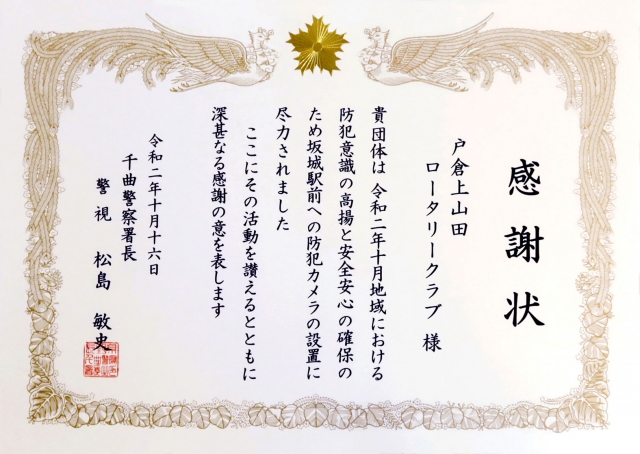 感謝状
戸倉上山田
ロータリークラブ 様
貴団体は 令和二年十月地域における
防犯意識の高揚と安全安心の確保の
ため坂城駅前への防犯カメラの設置に
尽力されました
ここにその活動を讃えるとともに
深甚なる感謝の意を表します
令和二年十月十六日
千曲警察署長
警視 松島 敏史